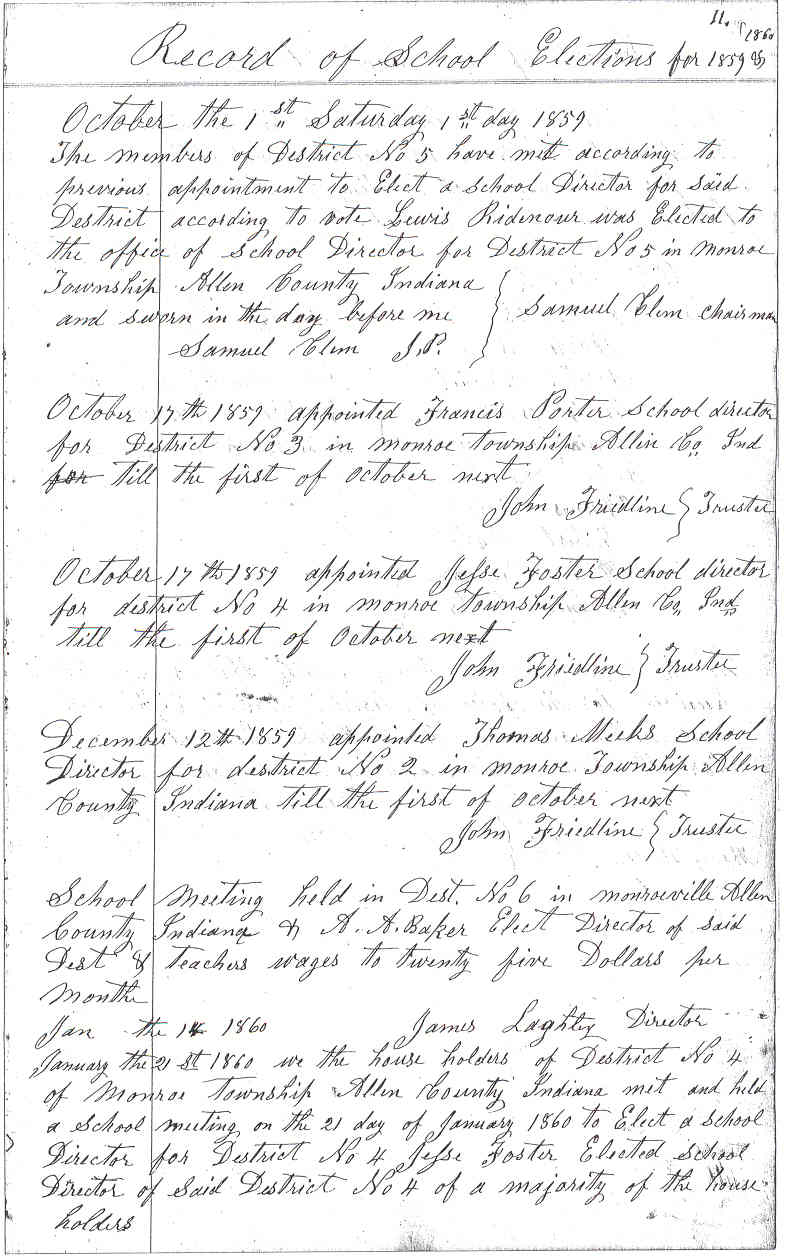 11.
Record of School Elections for 1859 & 1860
October the 1st Saturday 1st day 1859
The members of District No 5 have mit according to
previous appointment to Elect a School Director for Said
Destrict according to vote Lewis Ridenour was Elected to
the office of School Director for Destrict No 5 in monroe
Township Allen County Indiana
and sworn in the day before me } Samuel Clem chairman
Samuel Clem J.P.
October 17th 1859 appointed Francis Porter School director
for Destrict No 3 in monroe township Allen Co,, Ind
for till the first of October next
John Friedline } Trustee
October 17th 1859 appointed Jesse Foster School director
for district No 4 in monroe township Allen Co,, Ind
till the first of October next
John Friedline } Trustee
December 12th 1859 appointed Thomas Meeks School
Director for destrict No 2 in monroe Township Allen
County Indiana till the first of October next
John Friedline } Trustee
School Meeting held in Dest. No 6 in monroeville Allen
County Indiana & A. A. Baker Elect Director of said
Dest & teachers wages to twenty five Dollars per
Monthe
Jan the 14 1860 James Laghley Director
January the 21st 1860 we the house holders of District No 4
of Monroe Township Allen County Indiana met and held
a School meeting on the 21 day of January 1860 to Elect a School
Director for District No 4 Jesse Foster Elected School
Director of Said District No 4 of a majority of the house
holders